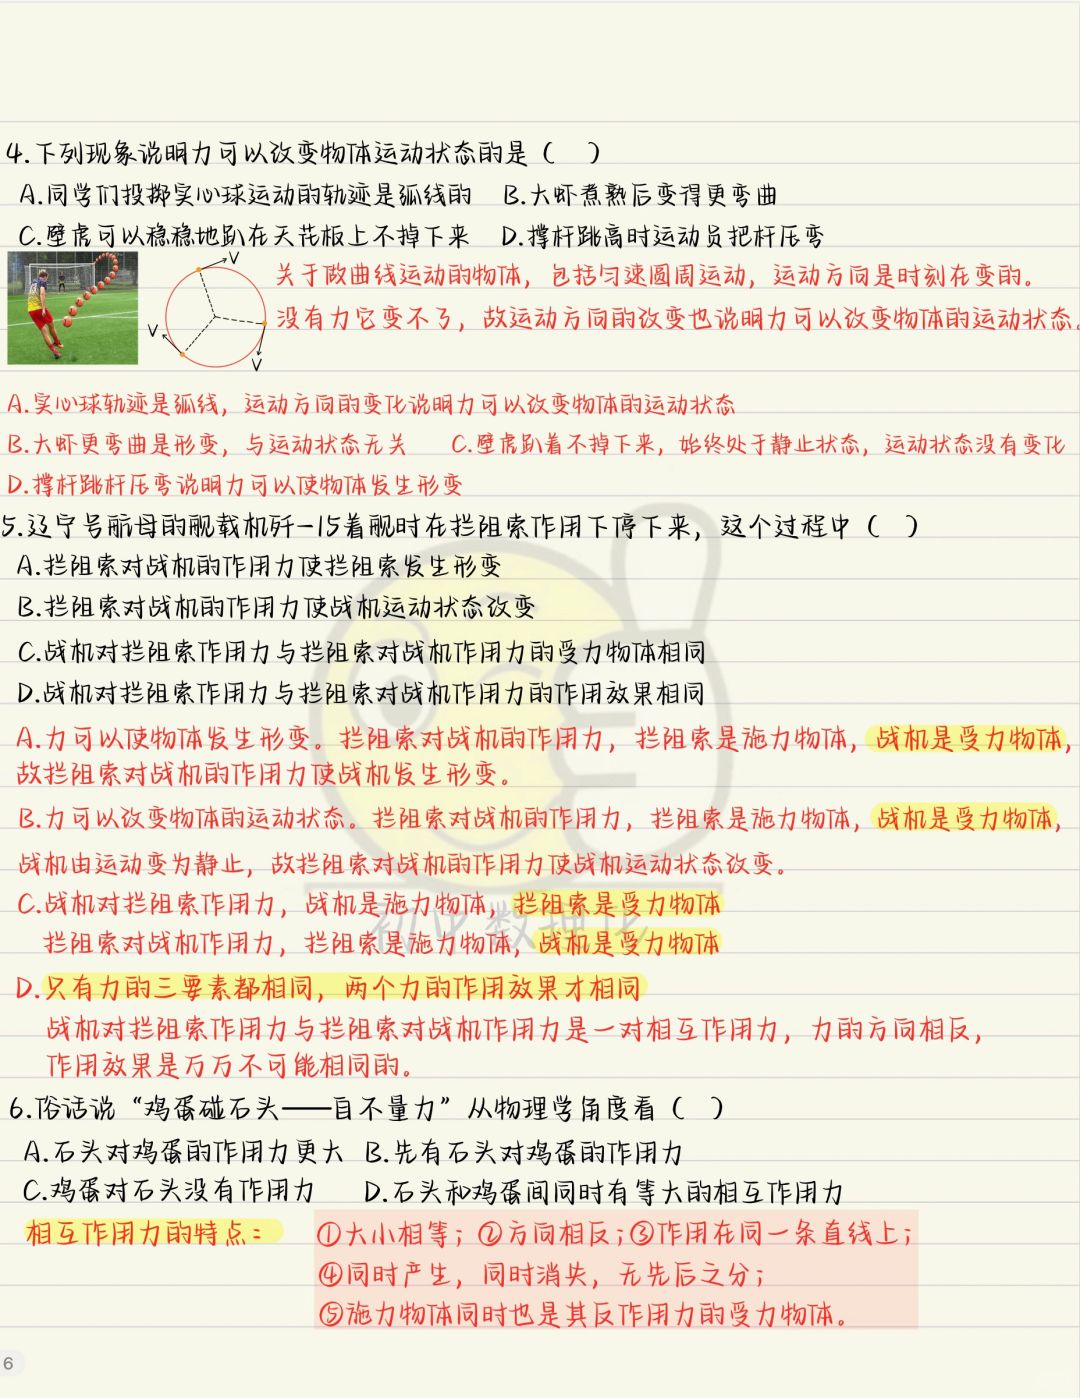 4.下列现象说明力可以改变物体运动状态的是（　）
A.同学们投掷实心球运动的轨迹是弧线的　B.大虾煮熟后变得更弯曲
C.壁虎可以稳稳地趴在天花板上不掉下来　D.撑杆跳高时运动员把杆压弯
V
V
V
关于做曲线运动的物体，包括匀速圆周运动，运动方向是时刻在变的。
没有力它变不了，故运动方向的改变也说明力可以改变物体的运动状态。
A.实心球轨迹是弧线，运动方向的变化说明力可以改变物体的运动状态
B.大虾更弯曲是形变，与运动状态无关　C.壁虎趴着不掉下来，始终处于静止状态，运动状态没有变化
D.撑杆跳杆压弯说明力可以使物体发生形变
5.辽宁号航母的舰载机歼-15着舰时在拦阻索作用下停下来，这个过程中（　）
A.拦阻索对战机的作用力使拦阻索发生形变
B.拦阻索对战机的作用力使战机运动状态改变
C.战机对拦阻索作用力与拦阻索对战机作用力的受力物体相同
D.战机对拦阻索作用力与拦阻索对战机作用力的作用效果相同
A.力可以使物体发生形变。拦阻索对战机的作用力，拦阻索是施力物体，战机是受力物体，
故拦阻索对战机的作用力使战机发生形变。
B.力可以改变物体的运动状态。拦阻索对战机的作用力，拦阻索是施力物体，战机是受力物体，
战机由运动变为静止，故拦阻索对战机的作用力使战机运动状态改变。
C.战机对拦阻索作用力，战机是施力物体，拦阻索是受力物体
初中数理化
拦阻索对战机作用力，拦阻索是施力物体，战机是受力物体
D.只有力的三要素都相同，两个力的作用效果才相同
战机对拦阻索作用力与拦阻索对战机作用力是一对相互作用力，力的方向相反，
作用效果是万万不可能相同的。
6.俗话说“鸡蛋碰石头——自不量力”从物理学角度看（　）
A.石头对鸡蛋的作用力更大　B.先有石头对鸡蛋的作用力
C.鸡蛋对石头没有作用力　D.石头和鸡蛋间同时有等大的相互作用力
相互作用力的特点：
①大小相等；②方向相反；③作用在同一条直线上；
④同时产生，同时消失，无先后之分；
⑤施力物体同时也是其反作用力的受力物体。
6